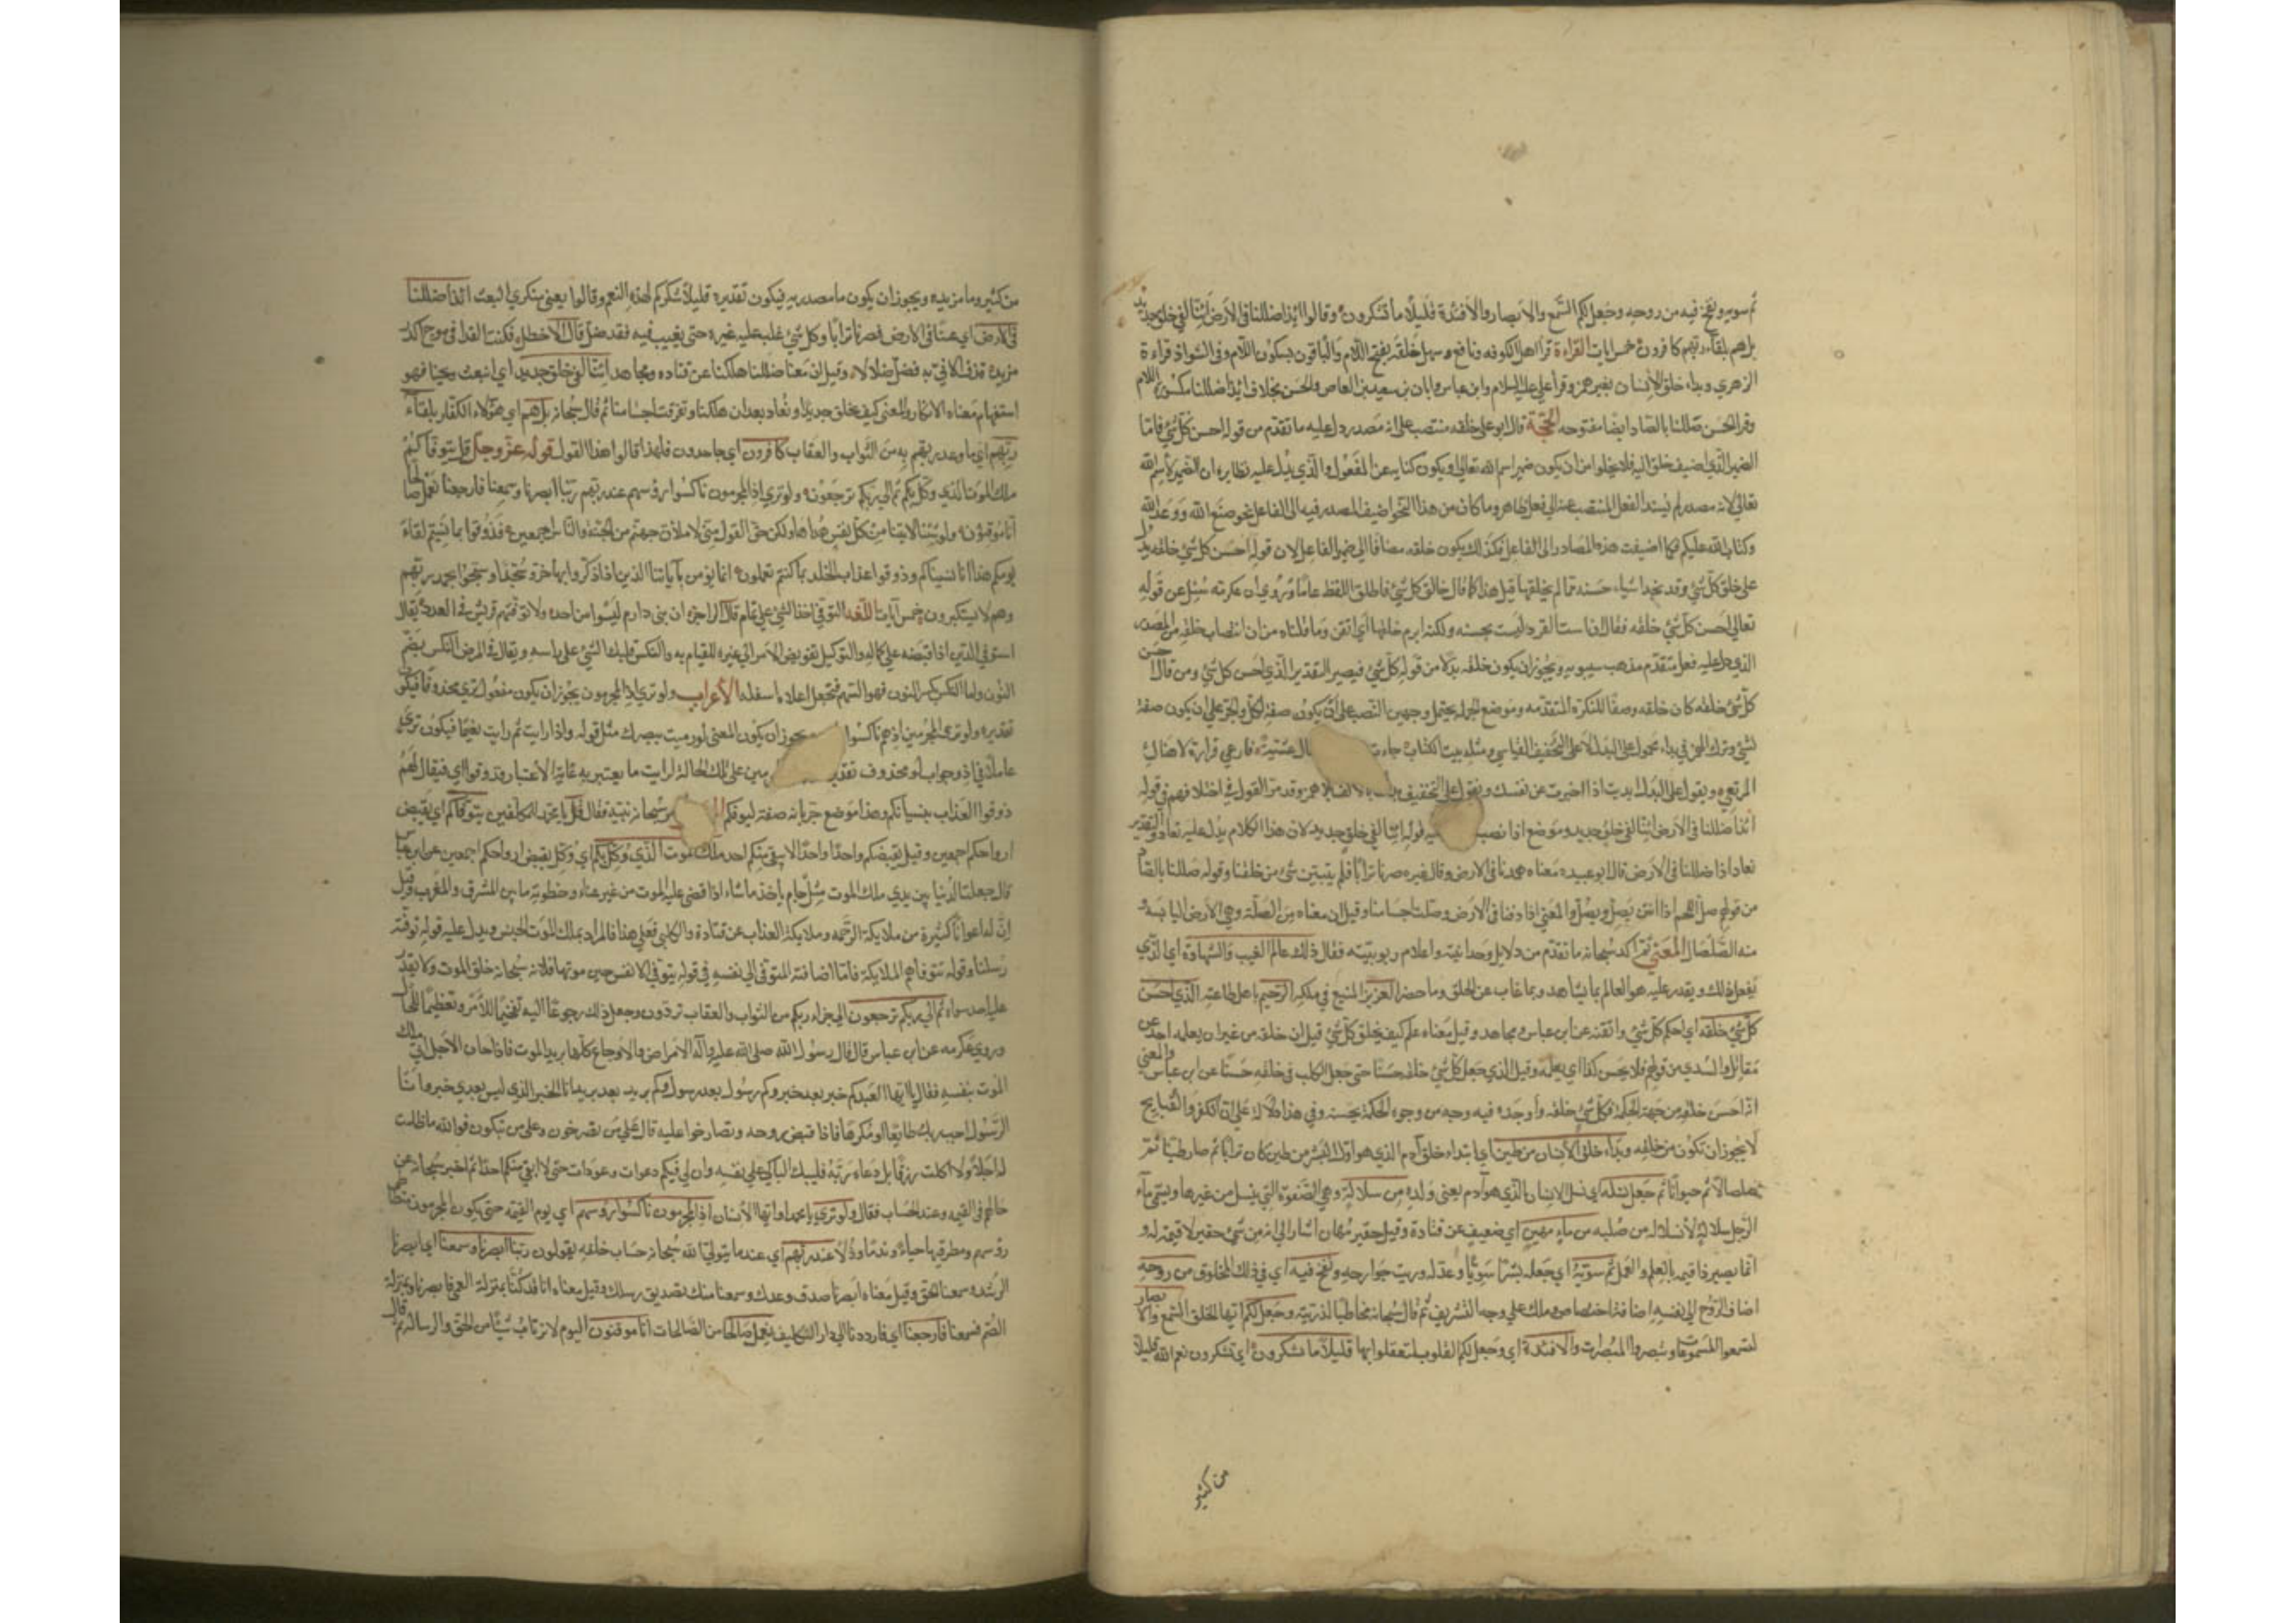 ثم سويه ونفخ فيه من روحه وجعل لكم السمع والابصار والافئدة قليلا ما تشكرون وقالوا ائذا ضللنا في الارض ائنا لفي خلق جديد
بل هم بلقاء ربهم كافرون خمس ايات القراءة قرا اهل الكوفه ونافع وسهل خلقه بفتح اللام والباقون بسكون اللام وفي الشواذ قراءة
الزهري وبداء خلق الانسان بغير همز وقرا علي عليه السلام وابن عباس وابان بن سعيد بن العاص والحسن بخلاف ائذا ضللنا بكسر اللام
وقرا الحسن صللنا بالصاد ايضا مفتوحه الحجة قال ابو علي خلقه منتصب على انه مصدر دل عليه ما تقدم من قوله احسن كل شئ فاما
الضمير الذي اضيف خلق اليه فلا يخلوا من ان يكون ضمير اسم الله تعالى او يكون كناية عن المفعول والذي يدل عليه نظايره ان الضمير لاسم الله
تعالى لانه مصدر لم يسند الفعل المنتصب عنه الى فعل ظاهر وما كان من هذا النحو اضيف المصدر فيه الى الفاعل نحو صنع الله ووعد الله
وكتاب الله عليكم فكما اضيفت هذه المصادر الى الفاعل فكذلك يكون خلقه مضافا الى ضمير الفاعل لان قوله احسن كل شئ خلقه يدل
على خلق كل شئ وقد نجد اشياء حسنه مما لم يخلقها قيل هذا كما قال خالق كل شئ فاطلق اللفظ عاما وروي ان عكرمه سئل عن قوله
تعالى احسن كل شئ خلقه فقال ان است القرد ليست بحسنه ولكنه ابرم خلقها اي اتقن وما قلناه من ان انتصاب خلقه من المصدر
الذي دل عليه فعل متقدم مذهب سيبويه ويجوز ان يكون خلقه بدلا من قوله كل شئ فيصير التقدير الذي احسن خلق كل شئ ومن قال
كل شئ خلقه كان خلقه وصفا للنكرة المتقدمه وموضع الجملة يحتمل وجهين النصب على ان يكون صفة لكل والجر على ان يكون صفة
لشئ وترك الهمز في بداء محمول على البدل لا على التخفيف القياسي ومثله بيت الكتاب عشية فارعي فزارة لا هناك
المرتع ويقول على البدل بديت اذا اخبرت عن نفسك ويقول على التخفيف همز وقد مر القول في اختلافهم في قوله
ائذا ضللنا في الارض ائنا لفي خلق جديد وموضع اذا نصب قوله ائنا لفي خلق جديد لان هذا الكلام يدل عليه تعاد والتقدير
نعاد اذا ضللنا في الارض قال ابو عبيده معناه همدنا في الارض وقال غيره صرنا ترابا فلم يتبين شئ من خلقنا وقوله صللنا بالصاد
من قولهم صل اللحم اذا انتن يصل ويصل والمعنى اذا دفنا في الارض وصلت اجسامنا وقيل ان معناه من الصلة وهي الارض اليابسة
منه الصلصال المعنى ثم اكد سبحانه ما تقدم من دلايل وحدانيته واعلام ربوبيته فقال ذلك عالم الغيب والشهادة اي الذي
يفعل ذلك ويقدر عليه هو العالم بما يشاهد وبما غاب عن الخلق وما حضر العزيز المنيع في ملكه الرحيم باهل طاعته الذي احسن
كل شئ خلقه اي احكم كل شئ واتقنه عن ابن عباس ومجاهد وقيل معناه علم كيف يخلق كل شئ قبل ان خلقه من غير ان يعلمه احد عن
مقاتل والسدي من قولهم فلان يحسن كذا اي يعلمه وقيل الذي جعل كل شئ خلقه حسنا حتى جعل الكلب في خلقه حسنا عن ابن عباس والمعنى
انه احسن خلقه من جهة الحكمة فكل شئ خلقه واوجده فيه وجه من وجوه الحكمة يحسنه وفي هذا دلالة على ان الكفر والقبايح
لا يجوز ان تكون من خلقه وبداء خلق الانسان من طين اي ابتداء خلق آدم الذي هو اول البشر من طين كان ترابا ثم صار طينا ثم
صلصالا ثم حيوانا ثم جعل نسله اي نسل الانسان الذي هو آدم يعني ولده من سلالة وهي الصفوة التي ينسل من غيرها ويسمى ماء
الرجل سلالة لانسلاله من صلبه من ماء مهين اي ضعيف عن قتادة وقيل حقير مهان اشار الى انه من شئ حقير لا قيمة له و
انما يصير ذا قيمه بالعلم والعمل ثم سويه اي جعله بشرا سويا وعدله ورتب جوارحه ونفخ فيه اي في ذلك المخلوق من روحه
اضاف الروح الى نفسه اضافة اختصاص وملك على وجه التشريف ثم قال سبحانه مخاطبا لذريته وجعل لكم ايها الخلق السمع والابصار
لتسمعوا المسموعات وتبصروا المبصرات والافئدة اي وجعل لكم القلوب لتعقلوا بها قليلا ما تشكرون اي تشكرون نعم الله قليلا
من كثير
من كثير وما مزيده ويجوز ان يكون ما مصدريه فيكون تقديره قليلا شكركم لهذه النعم وقالوا يعني منكري البعث ائذا ضللنا
في الارض اي غبنا في الارض فصرنا ترابا وكل شئ غلب عليه غيره حتى يغيب فيه فقد ضل قال الاخطل فكنت القذا في موج اكدر
مزبد قذف الاتي به فضل ضلالا وقيل ان معنا ضللنا هلكنا عن قتاده ومجاهد ائنا لفي خلق جديد اي انبعث ونحيا فهو
استفهام معناه الانكار والمعنى كيف نخلق خلقا جديدا ونعاد بعد ان هلكنا وتفرقت اجسامنا ثم قال سبحانه بل هم اي هؤلاء الكفار بلقاء
ربهم اي ما وعد ربهم به من الثواب والعقاب كافرون اي جاحدون فلهذا قالوا هذا القول قوله عز وجل قل يتوفاكم
ملك الموت الذي وكل بكم ثم الى ربكم ترجعون ولو ترى اذ المجرمون ناكسوا رؤسهم عند ربهم ربنا ابصرنا وسمعنا فارجعنا نعمل صالحا
انا موقنون ولو شئنا لاتينا كل نفس هداها ولكن حق القول مني لاملان جهنم من الجنة والناس اجمعين فذوقوا بما نسيتم لقاء
يومكم هذا انا نسيناكم وذوقوا عذاب الخلد بما كنتم تعملون انما يؤمن بآياتنا الذين اذا ذكروا بها خروا سجدا وسبحوا بحمد ربهم
وهم لا يستكبرون خمس آيات اللغه التوفي اخذ الشئ على تمام قال الراجز ان بني دارم ليسوا من احد ولا توفتهم قريش في العدد يقال
استوفى الدين اذا قبضه على كماله والتوكيل تفويض الامر الى غيره للقيام به والنكس قلبك الشئ على راسه ويقال في المرض النكس بضم
النون واما النكس بكسر النون فهو السهم فجعل اعلاه اسفله الاعراب ولو ترى اذ المجرمون يجوز ان يكون مفعول ترى محذوفا فيكون
تقديره ولو ترى المجرمين اذ هم ناكسوا ويجوز ان يكون المعنى لو رميت ببصرك مثل قوله واذا رايت ثم رايت نعيما فيكون ترى
عاملا في اذ وجواب لو محذوف على تلك الحالة لرايت ما يعتبر به غاية الاعتبار فذوقوا اي فيقال لهم
ذوقوا العذاب بنسيانكم وهذا موضع جر بانه صفة ليومكم سبحانه نبيه فقال قل يا محمد المكلفين يتوفاكم اي يقبض
ارواحكم اجمعين وقيل يقبضكم واحدا واحدا لا يبقى منكم احد ملك الموت الذي وكل بكم اي وكل بقبض ارواحكم اجمعين عن ابن عباس
قال جعلت الدنيا بين يدي ملك الموت مثل جام يأخذ ما شاء اذا قضى عليه الموت من غير عناء وخطوته ما بين المشرق والمغرب وقيل
ان له اعوانا كثيرة من ملايكة الرحمه وملايكة العذاب عن قتادة والكلبي فعلى هذا فالمراد بملك الموت الجنس ويدل عليه قوله توفته
رسلنا وقوله تتوفاهم الملايكة فاما اضافة التوفي الى نفسه في قوله يتوفى الانفس حين موتها فلانه سبحانه خلق الموت ولا يقدر
عليه احد سواه ثم الى ربكم ترجعون الى جزاء ربكم من الثواب والعقاب تردون وجعل ذلك رجوعا اليه تفخيما للامر وتعظيما للحال
وروى عكرمه عن ابن عباس قال قال رسول الله صلى الله عليه وآله الامراض والاوجاع كلها بريد الموت فاذا حان الاجل اتى ملك
الموت بنفسه فقال يا ايها العبد كم خبر بعد خبر وكم رسول بعد رسول وكم بريد بعد بريد انا الخبر الذي ليس بعدي خبر وانا
الرسول اجب ربك طايعا او مكرها فاذا قبض روحه وتصارخوا عليه قال على من تصرخون وعلى من تبكون فوالله ما ظلمت
له اجلا ولا اكلت رزقا بل دعاه ربه فليبك الباكي على نفسه وان لي فيكم دعوات وعودات حتى لا ابقي منكم احدا ثم اخبر سبحانه عن
حالهم في القيمه وعند الحساب فقال ولو ترى يا محمد او ايها الانسان اذ المجرمون ناكسوا رؤسهم اي يوم القيمه حتى يكون المجرمون
رؤسهم ومطرقيها حياء وندما وذلا عند ربهم اي عند ما يتولى الله سبحانه حساب خلقه يقولون ربنا ابصرنا وسمعنا اي ابصرنا
الرشد وسمعنا الحق وقيل معناه ابصرنا صدق وعدك وسمعنا منك تصديق رسلك وقيل معناه انا قد كنا بمنزلة العمي فابصرنا وبمنزلة
الصم فسمعنا فارجعنا اي فارددنا الى دار التكليف نعمل صالحا من الصالحات انا موقنون اليوم لا نرتاب شيئا من الحق والرساله ثم قال